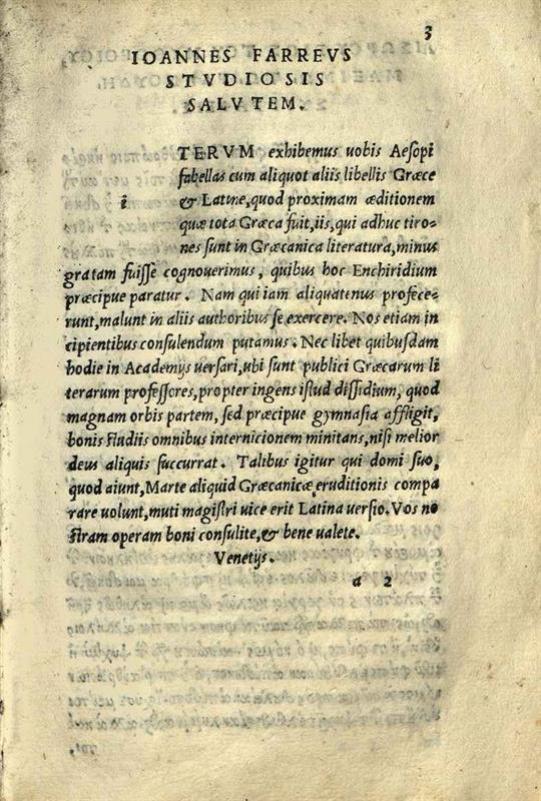 3
IOANNES FARREVS
STVDIOSIS
SALVTEM.
i TERVM exhibemus uobis Aesopi
fabellas cum aliquot aliis libellis Græce
& Latine, quod proximam æditionem
quæ tota Græca fuit, iis, qui adhuc tiro-
nes sunt in Græcanica literatura, minus
gratam fuisse cognouerimus, quibus hoc Enchiridium
præcipue paratur. Nam qui iam aliquatenus profece-
runt, malunt in aliis authoribus se exercere. Nos etiam in
cipientibus consulendum putamus. Nec libet quibusdam
hodie in Academijs uersari, ubi sunt publici Græcarum li
terarum professores, propter ingens istud dissidium, quod
magnam orbis partem, sed præcipue gymnasia affligit,
bonis studiis omnibus internicionem minitans, nisi melior
deus aliquis succurrat. Talibus igitur qui domi suo,
quod aiunt, Marte aliquid Græcanicæ eruditionis compa
rare uolunt, muti magistri uice erit Latina uersio. Vos no
stram operam boni consulite, & bene ualete.
Venetijs.
a 2